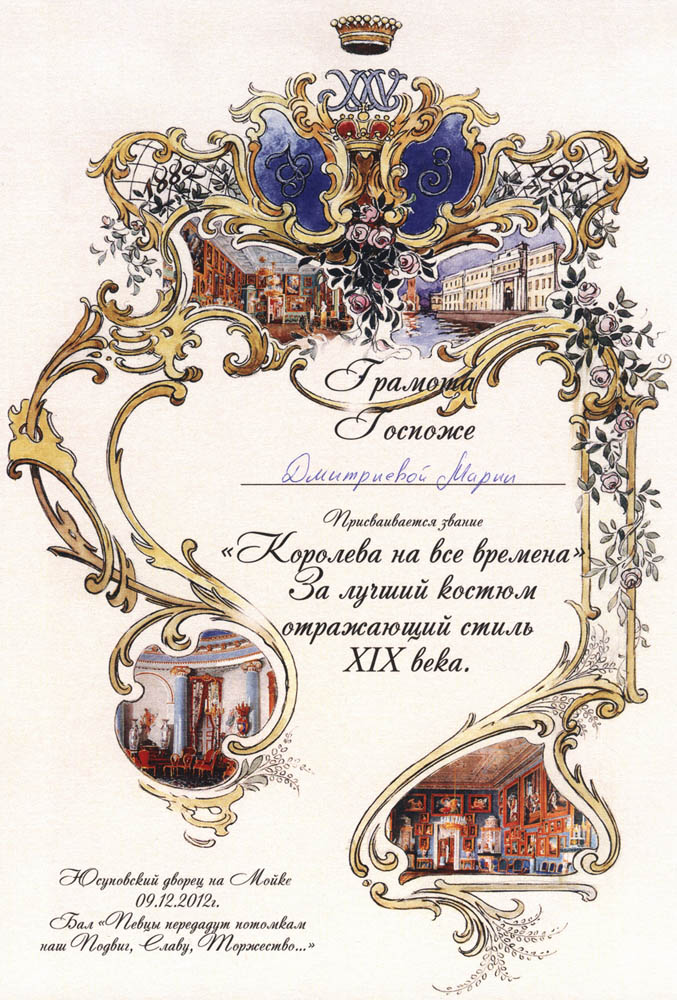 XXV
1882 1907
З
Грамота
Госпоже
Дмитриевой Марии
Присваивается звание
«Королева на все времена»
За лучший костюм
отражающий стиль
XIX века.
Юсуповский дворец на Мойке
09.12.2012г.
Бал «Певцы передадут потомкам
наш Подвиг, Славу, Торжество...»